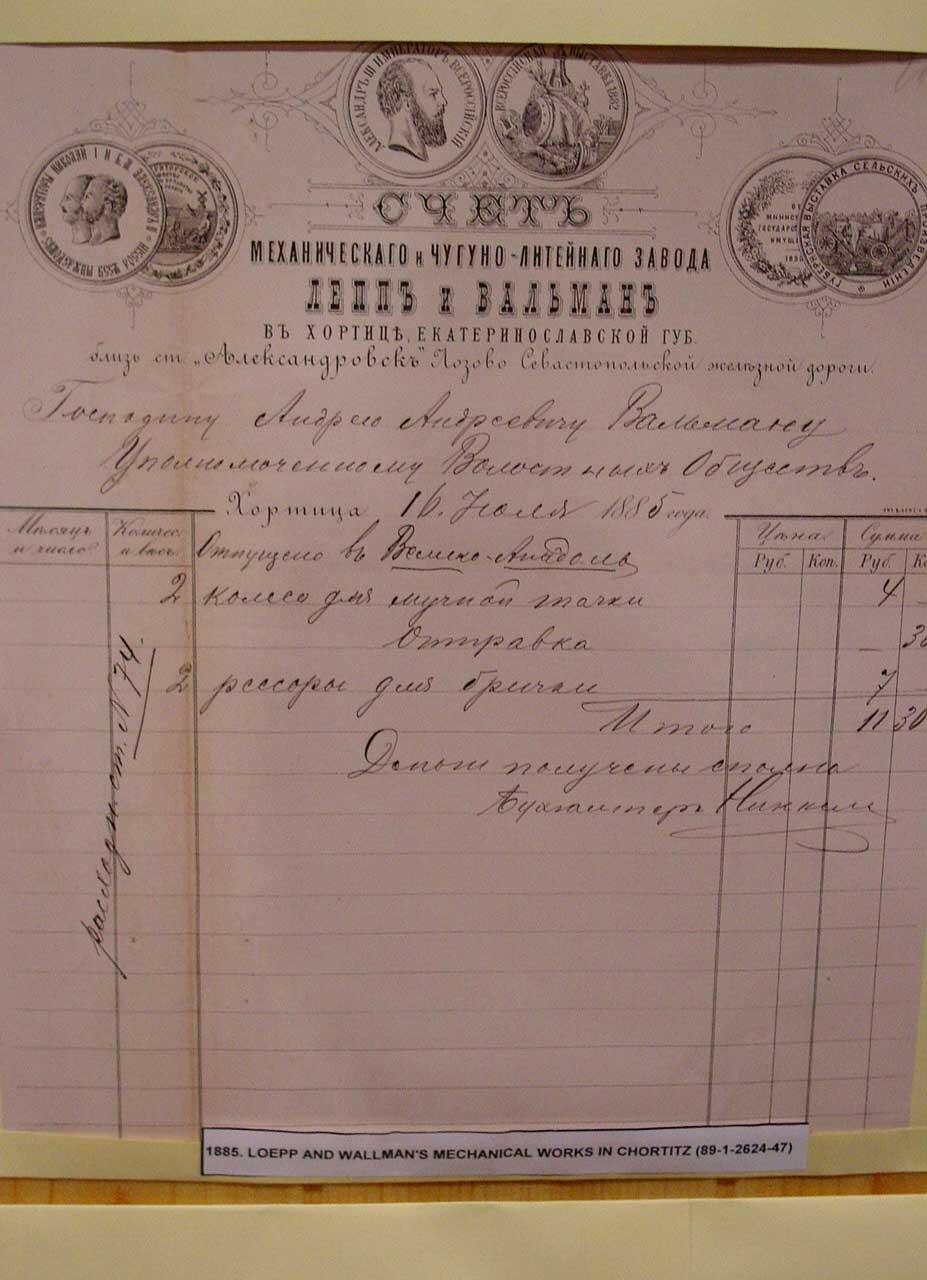 АЛЕКСАНДРЪ III ИМПЕРАТОРЪ ВСЕРОССІЙСКІЙ
ВСЕРОССІЙСКАЯ ВЫСТАВКА 1882
ИМПЕРАТОРЫ НИКОЛАЙ I И
ГУБЕРНСКАЯ ВЫСТАВКА СЕЛЬСКИХЪ ПРОИЗВЕДЕНІЙ
ОТ
МИНИС
ГОСУДАРС
ИМУЩ
СЧЕТЪ
МЕХАНИЧЕСКАГО и ЧУГУНО-ЛИТЕЙНАГО ЗАВОДА
ЛЕППЪ и ВАЛЬМАНЪ
ВЪ ХОРТИЦѢ, ЕКАТЕРИНОСЛАВСКОЙ ГУБ.
близь ст. „Александровскъ" Лозово Севастопольской желѣзной дороги.
Господину Андрею Андреевичу Вальману
Уполномоченному Волостныхъ Обществъ.
Хортица 16. Іюля 1885 года.
Мѣсяцъ и число Количес. и вѣсъ Цѣна Сумма
Руб. Коп. Руб. Ко
Отпущено въ Велико-Анадоль
2 колеса для мучной тачки 4 —
Отправка — 30
2 рессоры для брички 7
Итого 11 30
Деньги получены сполна
Бухгалтеръ
N 74.
1885. LOEPP AND WALLMAN'S MECHANICAL WORKS IN CHORTITZ (89-1-2624-47)